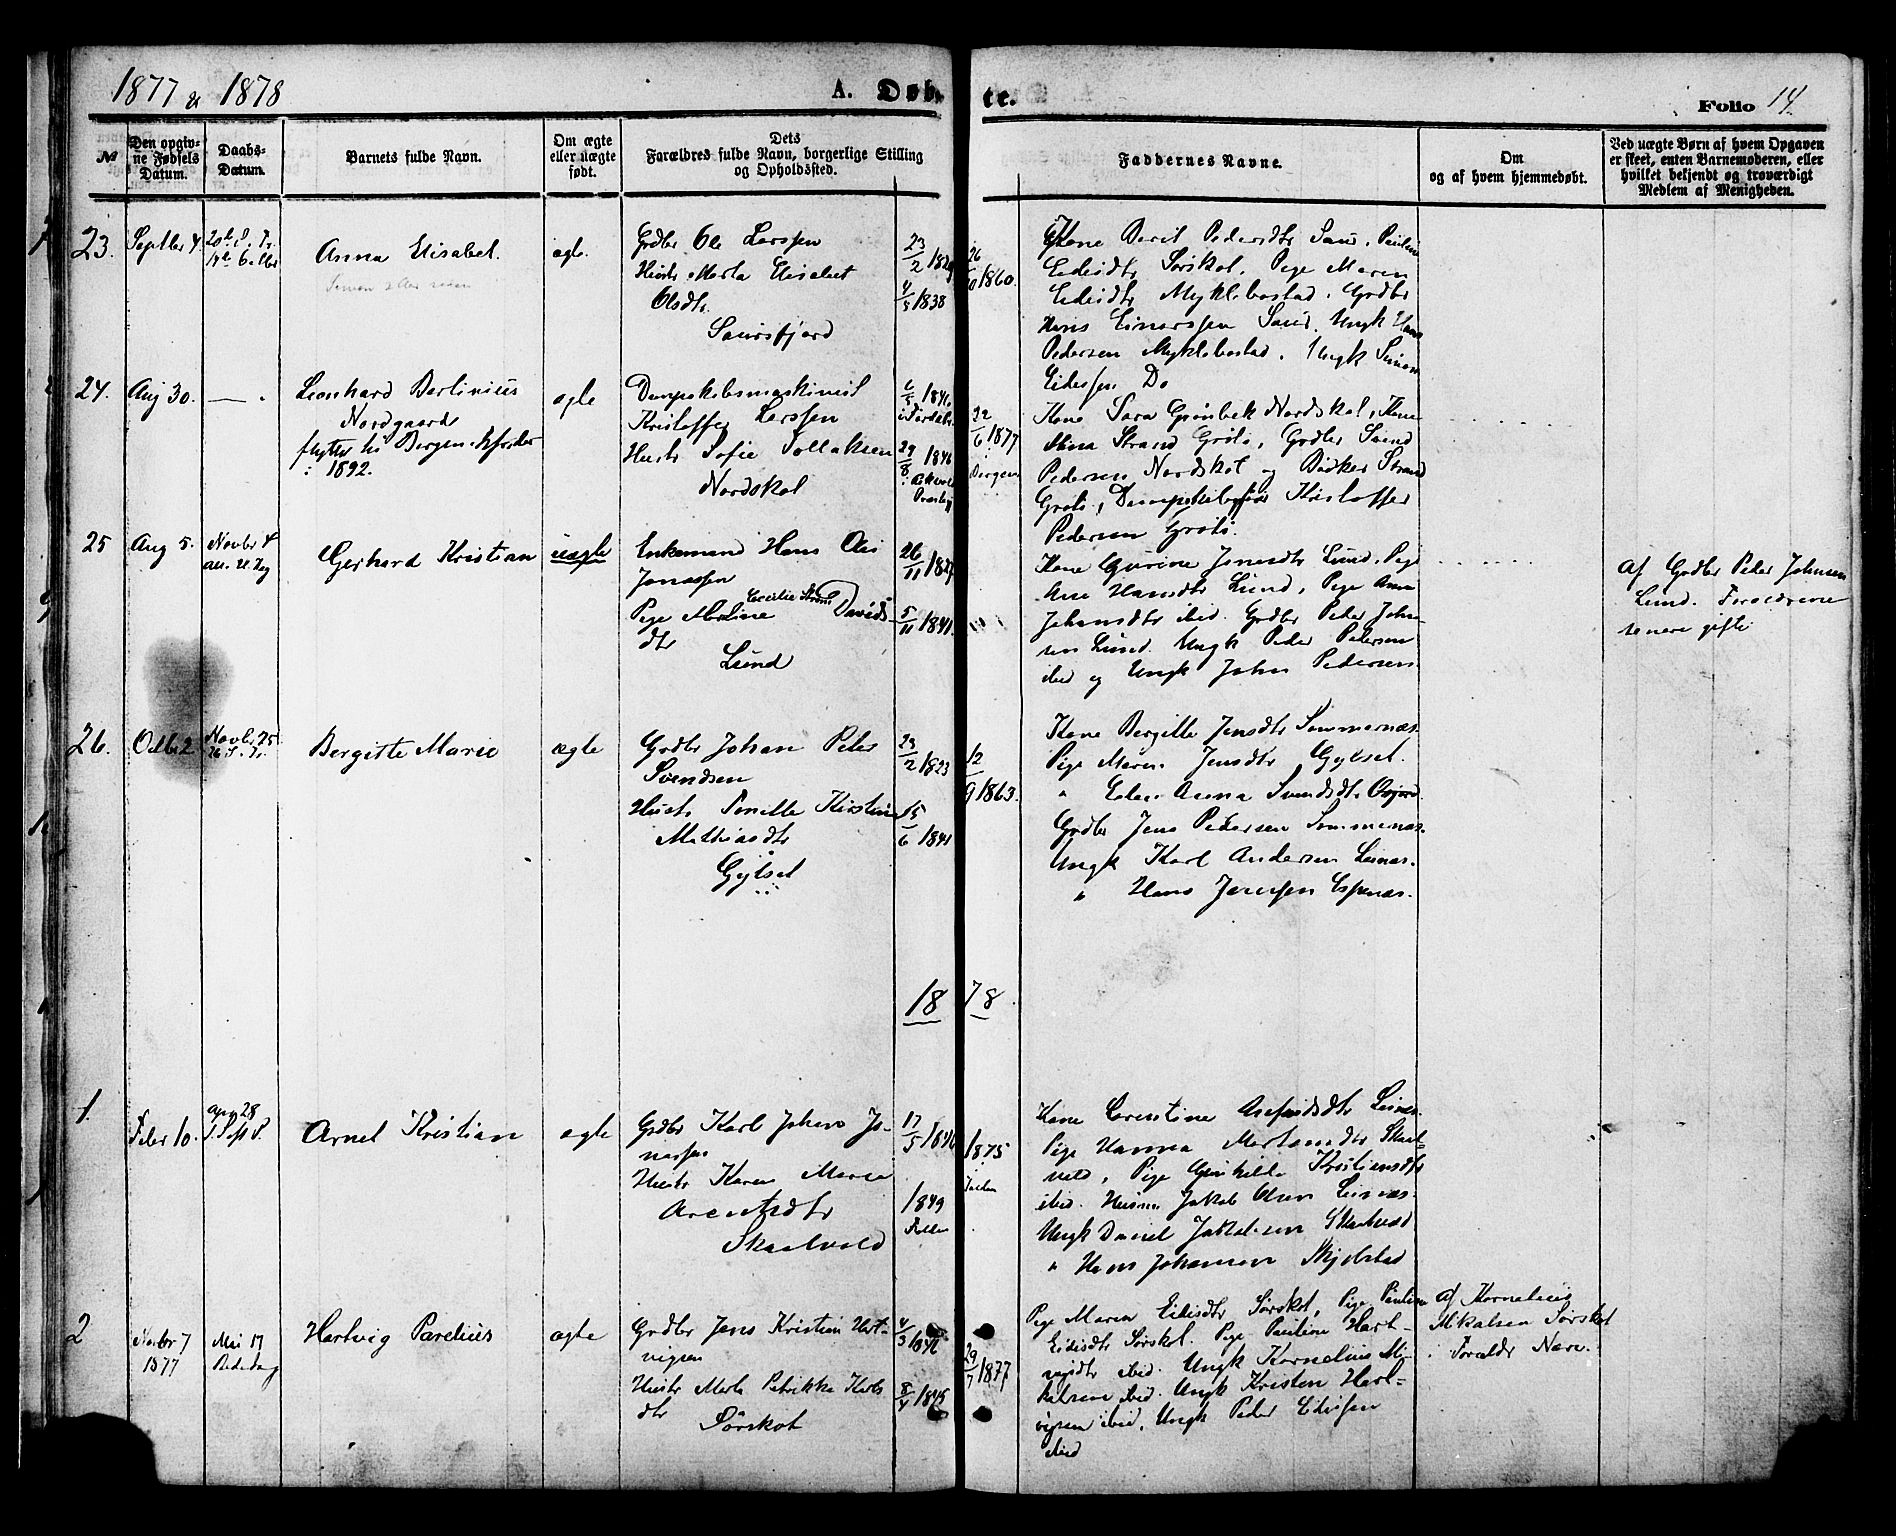 1877 & 1878
A. Døb-
te.
Folio 14.
№
Den opgiv-
ne Fødsels
Datum.
Daabs-
Datum.
Barnets fulde Navn.
Om ægte
eller uægte
født.
Dets
Forældres fulde Navn, borgerlige Stilling
og Opholdssted.
Faddernes Navne.
Om
og af hvem hjemmedøbt.
Ved uægte Børn af hvem Opgaven
er skeet, enten Barnemoderen, eller
hvilket bekjendt og troværdigt
Medlem af Menigheden.
23.
Septbr 4.
Anna Elisabet.
ægte.
Grdbr Ole Larssen
Hustr Marta Elisabet
Olsdtr
Saursfjord
23/2 1829
4/5 1838
1860.
Kone Berit Pedersdtr Saur. Pauline
Eidisdtr Sørskot. Pige Maren
Eidisdtr Myklebostad. Grdbr
Hans Einarssen Saur. Ungk Hans
Pedersen Myklebostad. Ungk Simon
Eidessen Do
24.
Aug 30.
Leonhard Berlinius
Nordgaard
flytter til Bergen
1892.
ægte
Dampskibsmaskinist
Kristoffer Larssen
Hustr Sofie Tollaksen
Nordskot
29/8 1846
22/6 1877
i Bergen
Kone Sara Grønbek Nordskot, Kone
Anna Strand Grøtø, Grdbr Svend
Pedersen Nordskot og Strand
Grøtø, Kristoffer
Pedersen Grøtø.
25
Aug 5.
Novbr 4
Gerhard Kristian
uægte
Enkemand Hans Olai
Jonassen
Pige Martine Cecilie Davids-
dtr
Lund
26/11 1827
5/11 1841.
Kone Gurine Jonasdtr Lund. Pige
Ane Hansdtr Lund, Pige Ane
Johansdtr ibid. Grdbr Peder John-
sen Lund. Ungk Peder Pedersen
ibid og Ungk John Pedersen.
Af Grdbr Peder Johnsen
Lund. Forældrene
senere gifte
26.
Octbr 2
Novbr 25
26 S. Tr.
Bergitte Marie
ægte
Grdbr Johan Peter
Svendsen
Hustr Pernille Kirstine
Mathiasdtr
Gylset
23/2 1823
15/6 1841
12/9 1863.
Kone Bergitte Jensdtr Sommernæs.
Pige Maren Jensdtr Gylset.
" Anna Svendsdtr
Grdbr Jens Pedersen Sommernæs.
Ungk Karl Andersen Leines.
" Hans Jenssen Espenæs.
18 78
1.
Feber 10.
Apr 28
Arnet Kristian
ægte
Grdbr Karl Johan Jo-
nassen
Hustr Karen Maria
Arentsdtr
Skaalvold
17/5
1849
1875
Kone Lorentine Leines.
Pige Hanna Mortensdtr
Pige Kristiansdtr
ibid. Husm Jakob Olsen Leines.
Ungk Daniel Jakobsen
" Hans Johansen Skjelstad
2
Novbr 7
1877
Mai 17
Bededag
Hartvig Parelius
ægte
Grdbr Jens Kristian Hart-
vigsen
Hustr Marta Petrikke Karls
dtr
Sørskot
8/4 1845
29/7 1877
Pige Maren Eidisdtr Sørskot, Pige Pauline
Eidisdtr Sørskot. Pige Pauline Hart-
vigsdtr ibid. Ungk Kornelius Mi-
kalsen ibid. Ungk Kristen Hart-
vigsen ibid. Ungk Peder Eidissen
ibid
Af Kornelius
Mikalsen Sørskot
i Forældr Nærv.